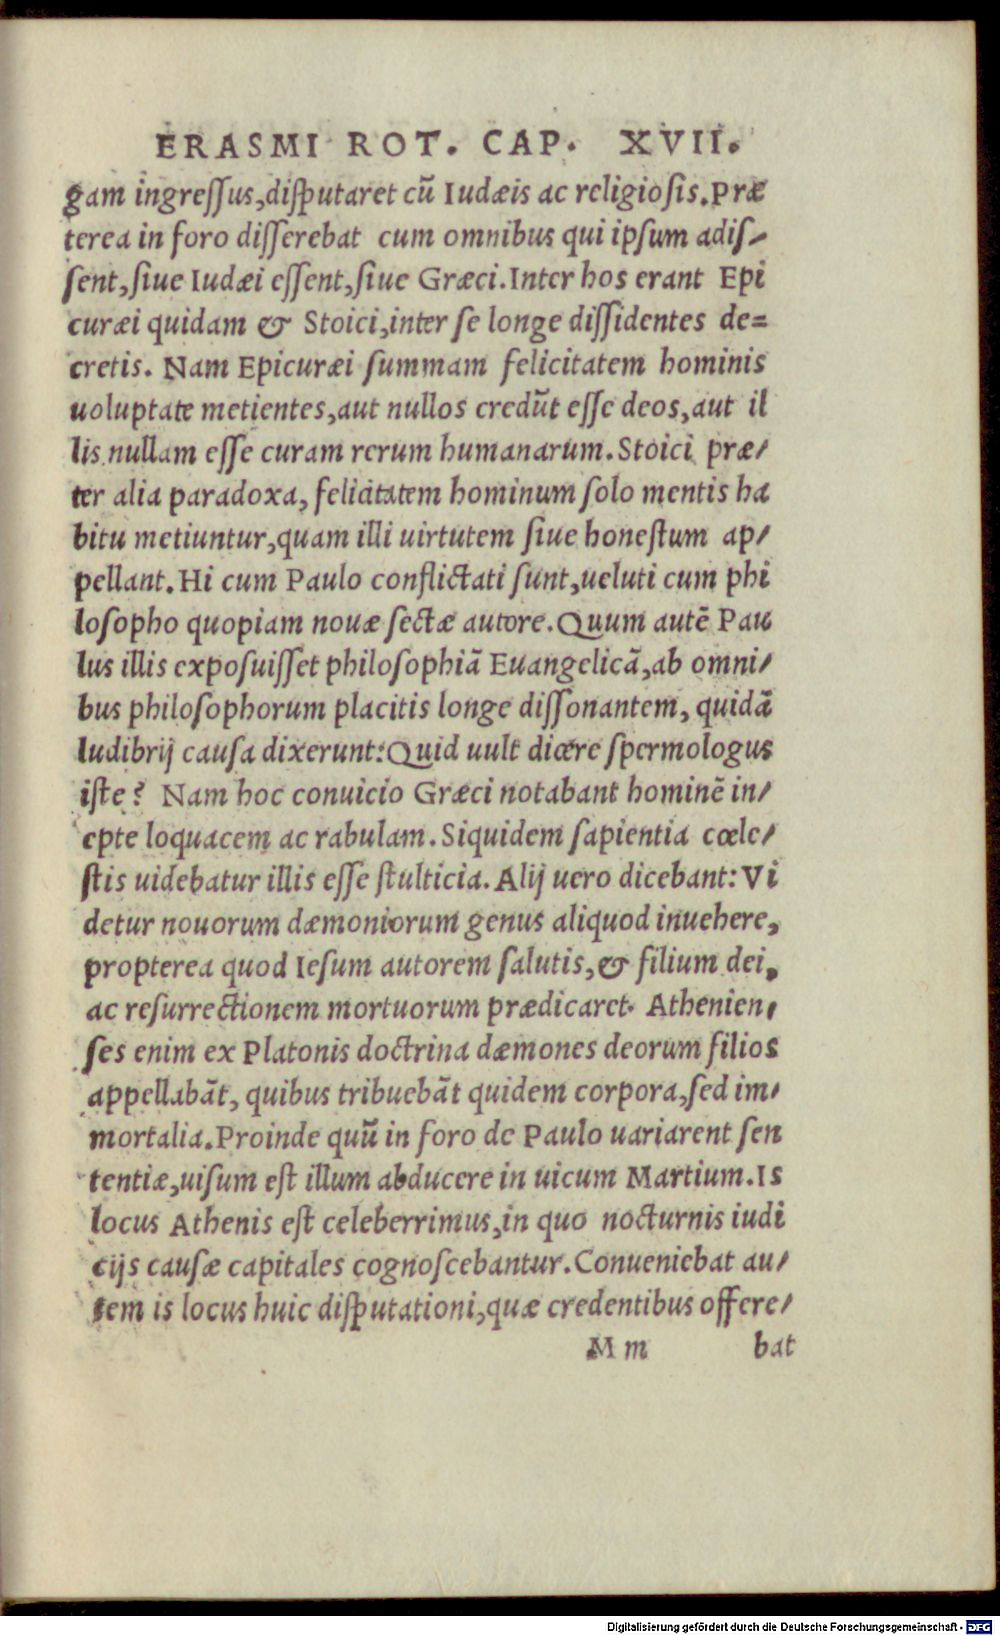 ERASMI ROT. CAP. XVII.
gam ingressus,disputaret cũ Iudæis ac religiosis.Præ
terea in foro disserebat cum omnibus qui ipsum adis/
sent,siue Iudæi essent,siue Græci.Inter hos erant Epi
curæi quidam & Stoici,inter se longe dissidentes de=
cretis. Nam Epicuræi summam felicitatem hominis
uoluptate metientes,aut nullos credũt esse deos,aut il
lis nullam esse curam rerum humanarum.Stoici præ/
ter alia paradoxa, felicitatem hominum solo mentis ha
bitu metiuntur,quam illi uirtutem siue honestum ap/
pellant.Hi cum Paulo conflictati sunt,ueluti cum phi
losopho quopiam nouæ sectæ autore.Quum autẽ Pau
lus illis exposuisset philosophiã Euangelicã,ab omni/
bus philosophorum placitis longe dissonantem, quidã
ludibrij causa dixerunt:Quid uult dicere spermologus
iste? Nam hoc conuicio Græci notabant hominẽ in/
epte loquacem ac rabulam.Siquidem sapientia cœle/
stis uidebatur illis esse stulticia.Alij uero dicebant:Vi
detur nouorum dæmoniorum genus aliquod inuehere,
propterea quod Iesum autorem salutis,& filium dei,
ac resurrectionem mortuorum prædicaret. Athenien/
ses enim ex Platonis doctrina dæmones deorum filios
appellabãt, quibus tribuebãt quidem corpora,sed im/
mortalia.Proinde quũ in foro de Paulo uariarent sen
tentiæ,uisum est illum abducere in uicum Martium.Is
locus Athenis est celeberrimus,in quo nocturnis iudi
cijs causæ capitales cognoscebantur.Conueniebat au/
tem is locus huic disputationi,quæ credentibus offere/
M m bat
Digitalisierung gefördert durch die Deutsche Forschungsgemeinschaft - DFG